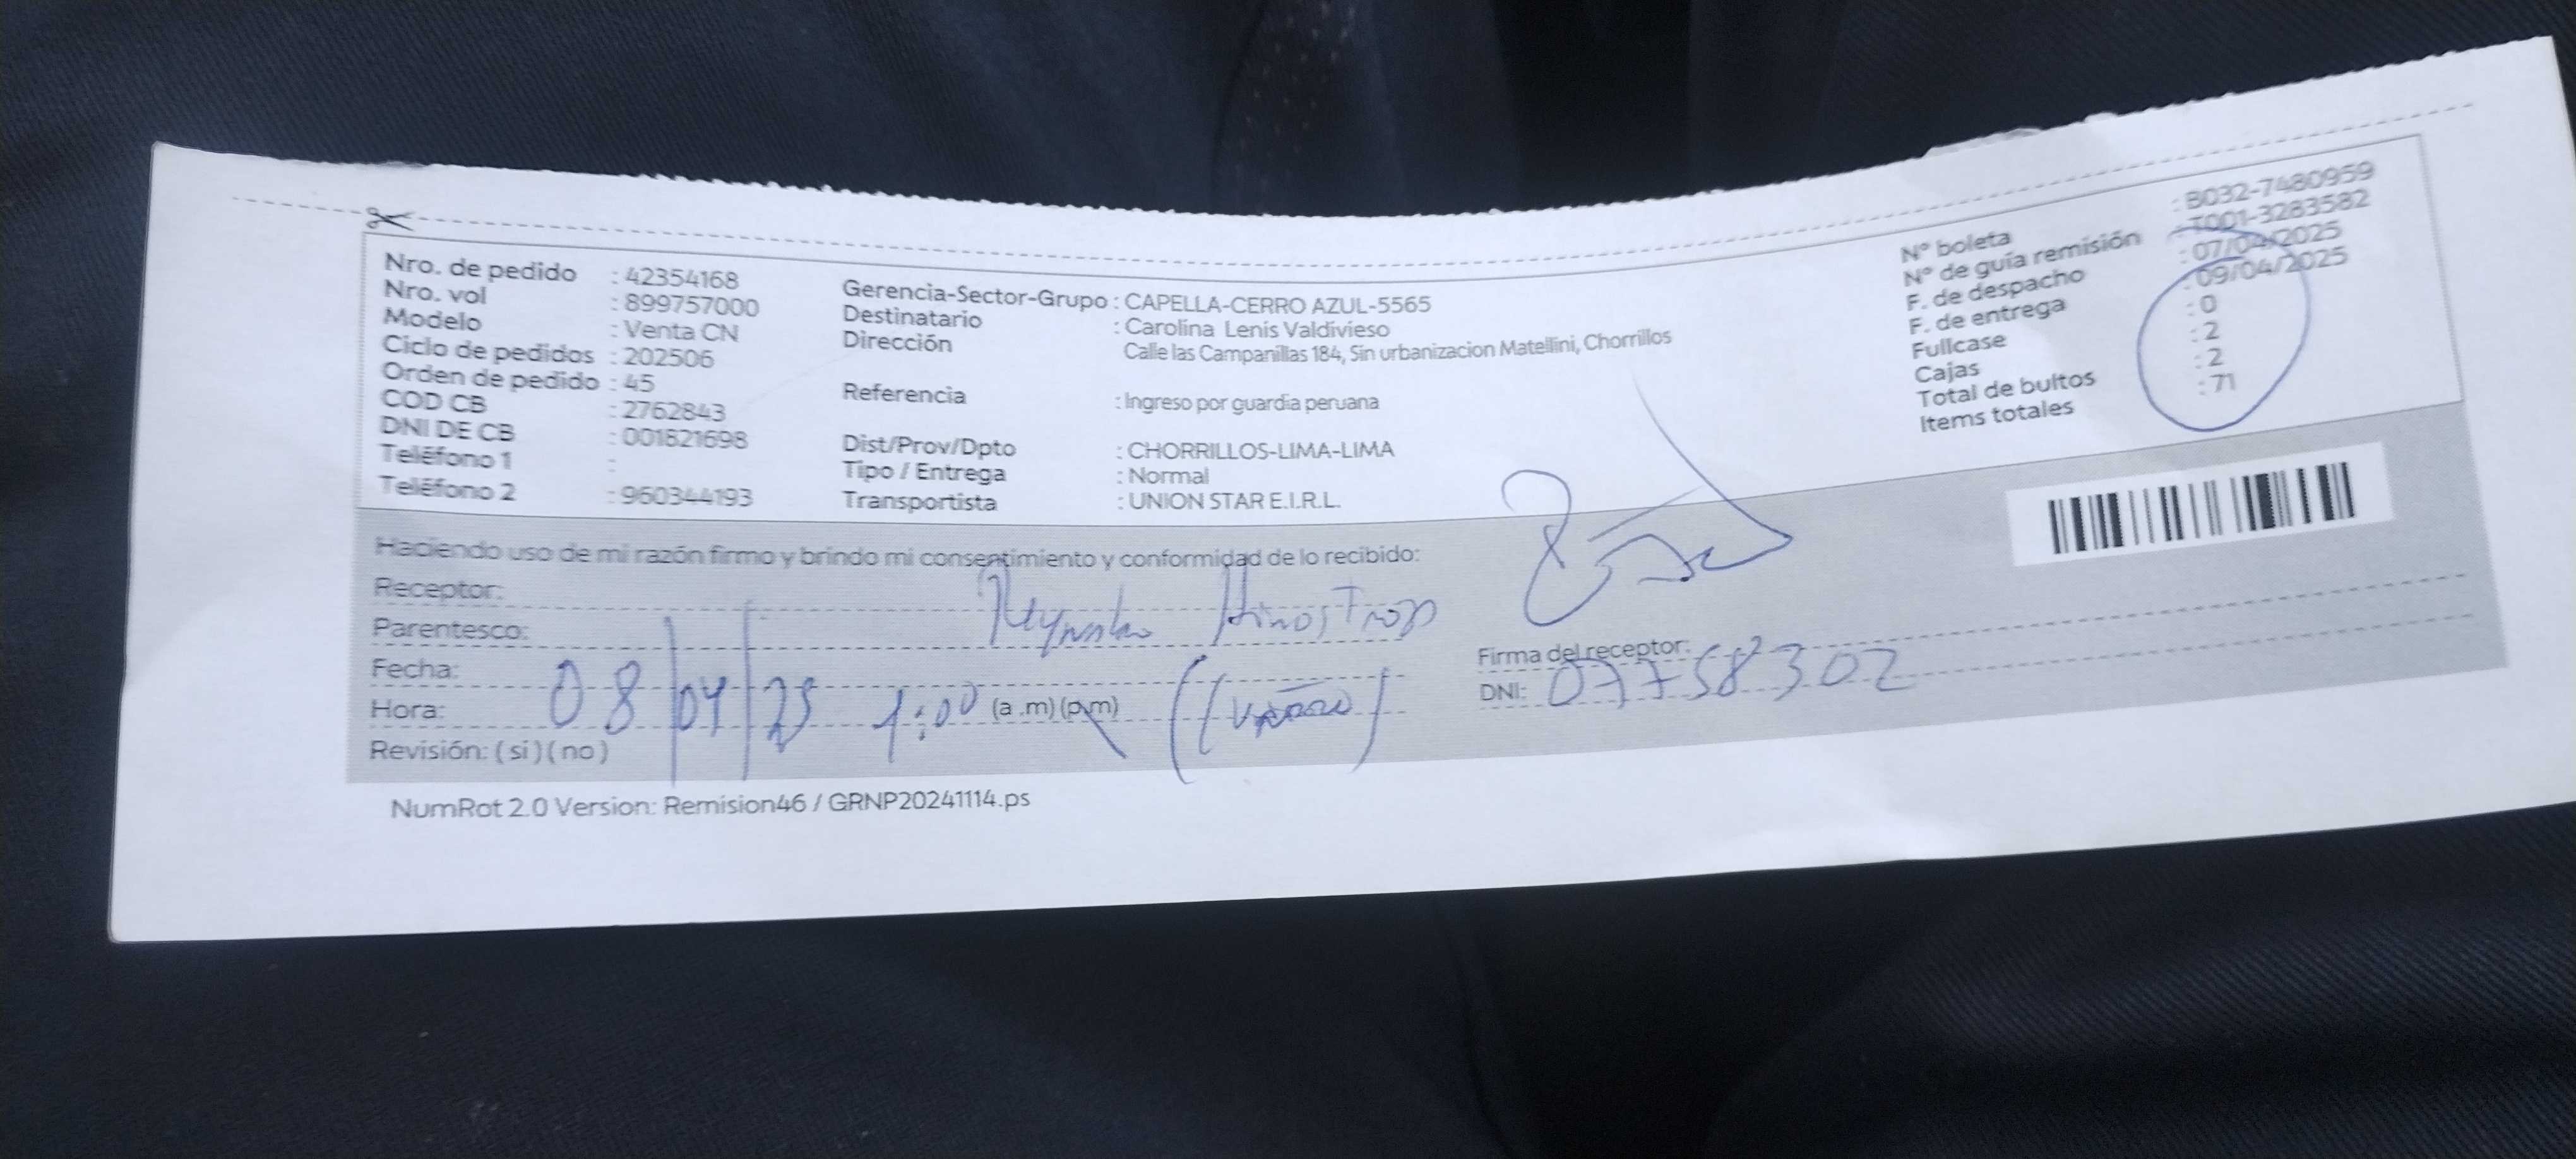 Nro. de pedido : 42354168
Nro. vol : 899757000
Modelo : Venta CN
Ciclo de pedidos : 202506
Orden de pedido : 45
COD CB : 2762843
DNI DE CB : 001821698
Teléfono 1 :
Teléfono 2 : 960344193
Gerencia-Sector-Grupo : CAPELLA-CERRO AZUL-5565
Destinatario : Carolina Lenis Valdivieso
Dirección Calle las Campanillas 184, Sin urbanizacion Matellini, Chorrillos
Referencia : Ingreso por guardia peruana
Dist/Prov/Dpto : CHORRILLOS-LIMA-LIMA
Tipo / Entrega : Normal
Transportista : UNION STAR E.I.R.L.
N° boleta : B032-7480959
N° de guía remisión : T001-3283582
F. de despacho : 07/04/2025
F. de entrega : 09/04/2025
Fullcase : 0
Cajas : 2
Total de bultos : 2
Items totales : 71
Haciendo uso de mi razón firmo y brindo mi consentimiento y conformidad de lo recibido:
Receptor:
Parentesco: Hinostroza
Fecha:
Hora: 08/04/25 1:00 (a .m) (p.m)
Revisión: ( si ) ( no )
Firma del receptor:
DNI: 07758302
NumRot 2.0 Version: Remision46 / GRNP20241114.ps